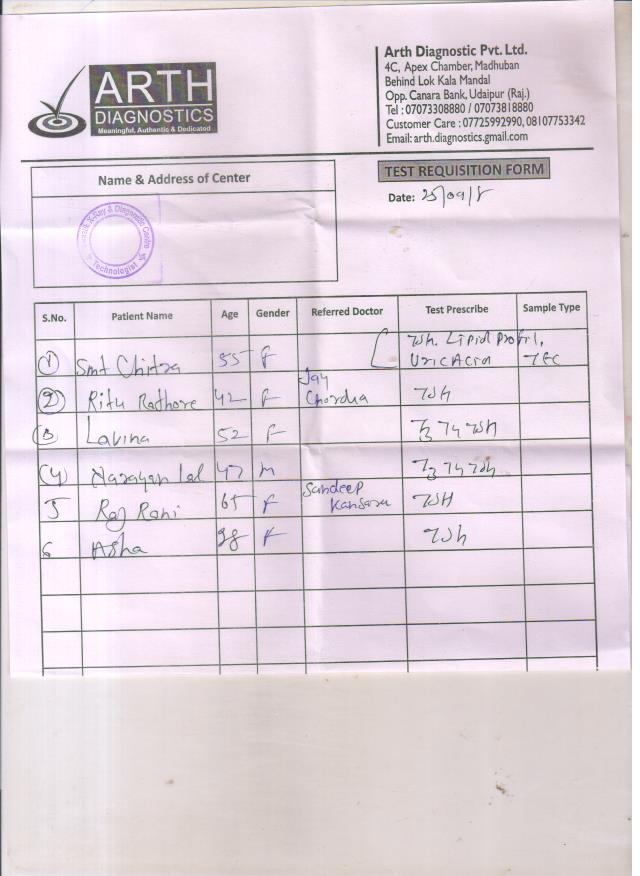 ARTH
DIAGNOSTICS
Meaningful, Authentic & Dedicated
Arth Diagnostic Pvt. Ltd.
4C, Apex Chamber, Madhuban
Behind Lok Kala Mandal
Opp. Canara Bank, Udaipur (Raj.)
Tel : 07073308880 / 07073818880
Customer Care : 07725992990, 08107753342
Email: arth.diagnostics.gmail.com
Name & Address of Center
TEST REQUISITION FORM
Date:
X-Ray & Diagnostic Centre
Technologist
S.No. Patient Name Age Gender Referred Doctor Test Prescribe Sample Type
1 Smt Chitra 55 F TSh. Lipid Profil,
Uric Acid
2 Ritu Rathore 42 F Jay
Chordia TSh
3 Lavina 52 F T3 T4 TSh
(4) Narayan Lal 47 M T3 T4 TSh
5 Raj Rani 65 F Sandeep
Kansara TSH
6 Asha 38 F TSh